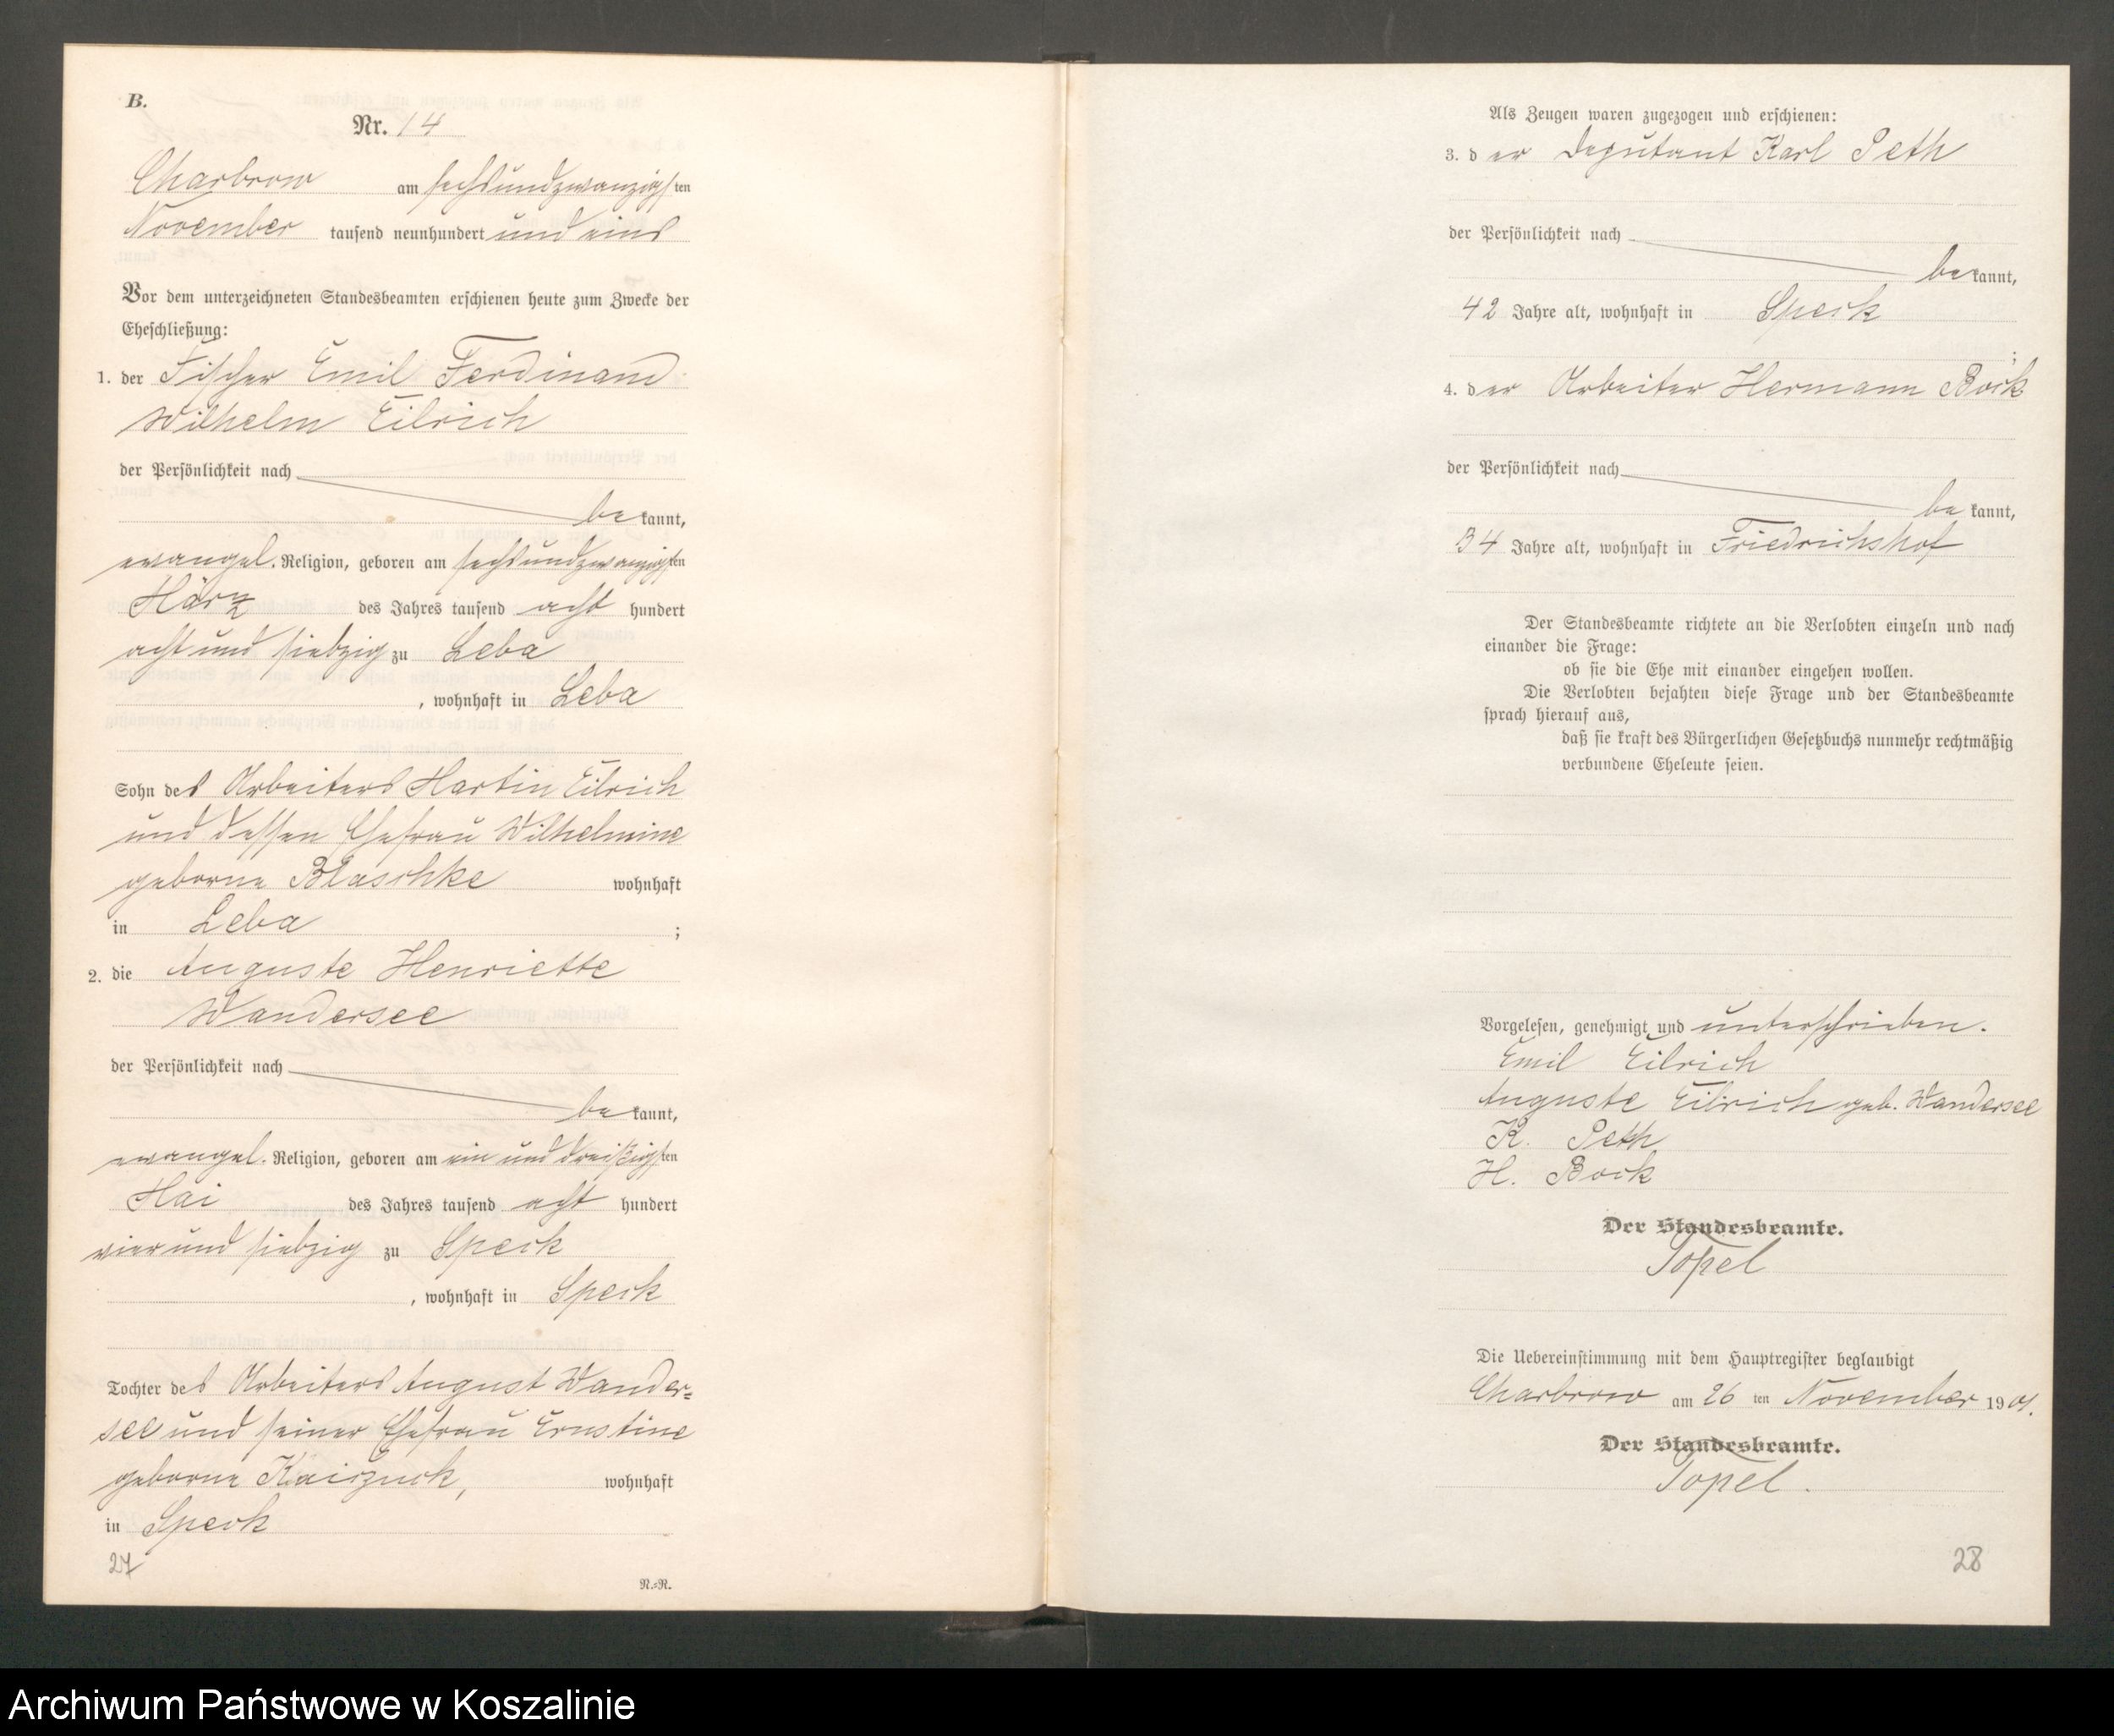 B.
Nr. 14
Charbrow am sechsundzwanzigsten
November tausend neunhundert und eins
Vor dem unterzeichneten Standesbeamten erschienen heute zum Zwecke der
Eheschließung:
1. der Fischer Emil Ferdinand
Wilhelm Eilrich
der Persönlichkeit nach
bekannt,
evangel. Religion, geboren am sechsundzwanzigsten
März des Jahres tausend acht hundert
acht und siebzig zu Leba
, wohnhaft in Leba
Sohn des Arbeiters Martin Eilrich
und dessen Ehefrau Wilhelmine
geborne Blaschke wohnhaft
in Leba ;
2. die Auguste Henriette
Wandersee
der Persönlichkeit nach
bekannt,
evangel. Religion, geboren am ein und dreißigsten
Mai des Jahres tausend acht hundert
vier und siebzig zu Speck
, wohnhaft in Speck
Tochter des Arbeiters August Wander=
see und seiner Ehefrau Ernstine
geborne Kaiszuck, wohnhaft
in Speck
27
N.=N.
Als Zeugen waren zugezogen und erschienen:
3. der Deputant Karl Peth
der Persönlichkeit nach
bekannt,
42 Jahre alt, wohnhaft in Speck
;
4. der Arbeiter Hermann Bock
der Persönlichkeit nach
bekannt,
34 Jahre alt, wohnhaft in Friedrichshof
Der Standesbeamte richtete an die Verlobten einzeln und nach
einander die Frage:
ob sie die Ehe mit einander eingehen wollen.
Die Verlobten bejahten diese Frage und der Standesbeamte
sprach hierauf aus,
daß sie kraft des Bürgerlichen Gesetzbuchs nunmehr rechtmäßig
verbundene Eheleute seien.
Vorgelesen, genehmigt und unterschrieben.
Emil Eilrich
Auguste Eilrich geb. Wandersee
K. Peth
H. Bock
Der Standesbeamte.
Topel
Die Uebereinstimmung mit dem Hauptregister beglaubigt
Charbrow am 26 ten November 1901.
Der Standesbeamte.
Topel.
28
Archiwum Państwowe w Koszalinie